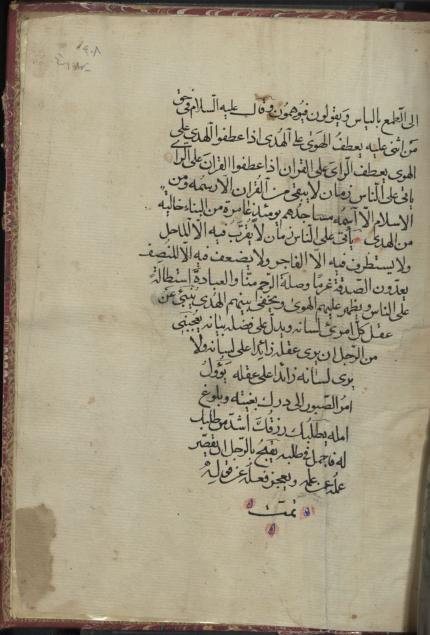 الى الطمع بالياس ويقولون فيؤمنون وقال عليه السلام في حق
من اثنى عليه يعطف الهوى على الهدى اذا عطفوا الهدى على
الهوى يعطف الراى على القران اذا عطفوا القران على الراى
ياتى على الناس زمان لا يبقى من القران الا رسمه ومن
الاسلام الا اسمه مساجدهم يومئذ عامرة من البناء خالية
من الهدى ياتى على الناس زمان لا يقرب فيه الا الماحل
ولا يستظرف فيه الا الفاجر ولا يضعف فيه الا المنصف
يعدون الصدقة غرما وصلة الرحم منا والعبادة استطالة
على الناس ويظهر عليهم الهوى ويخفى بينهم الهدى ينبئ عن
عقل كل امرئ لسانه ويدل على فضله بيانه يعجبنى
من الرجل ان يرى عقله زائدا على لسانه ولا
يرى لسانه زائدا على عقله يؤول
امر الصبور الى درك بغيته وبلوغ
امله يطلبك رزقك اشد من طلبك
له فاجمل فى طلبه يقبح بالرجل ان يقصر
عمله عن علمه ويعجز فعله عن قوله
تمت